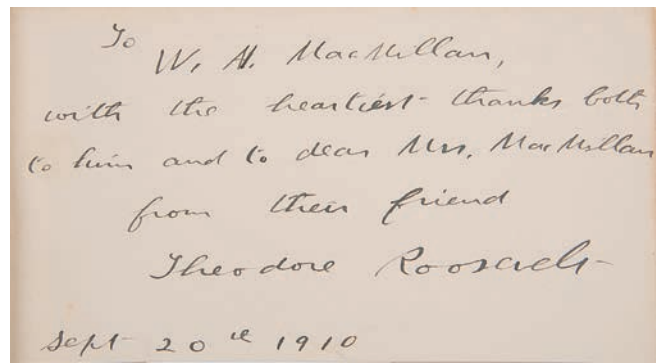 To
W. N. MacMillan,
with the heartiest thanks both
to him and to dear Mrs. MacMillan
from their friend
Theodore Roosevelt
Sept 20th 1910